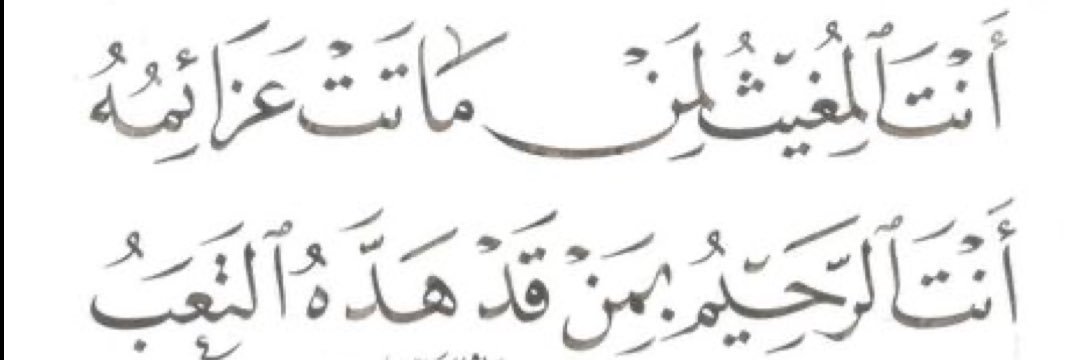 أَنْتَ ٱلمُغِيثُ لِمَنْ مَاتَتْ عَزَائِمُهُ
أَنْتَ ٱلرَّحِيمُ بِمَنْ قَدْ هَدَّهُ ٱلتَّعَبُ